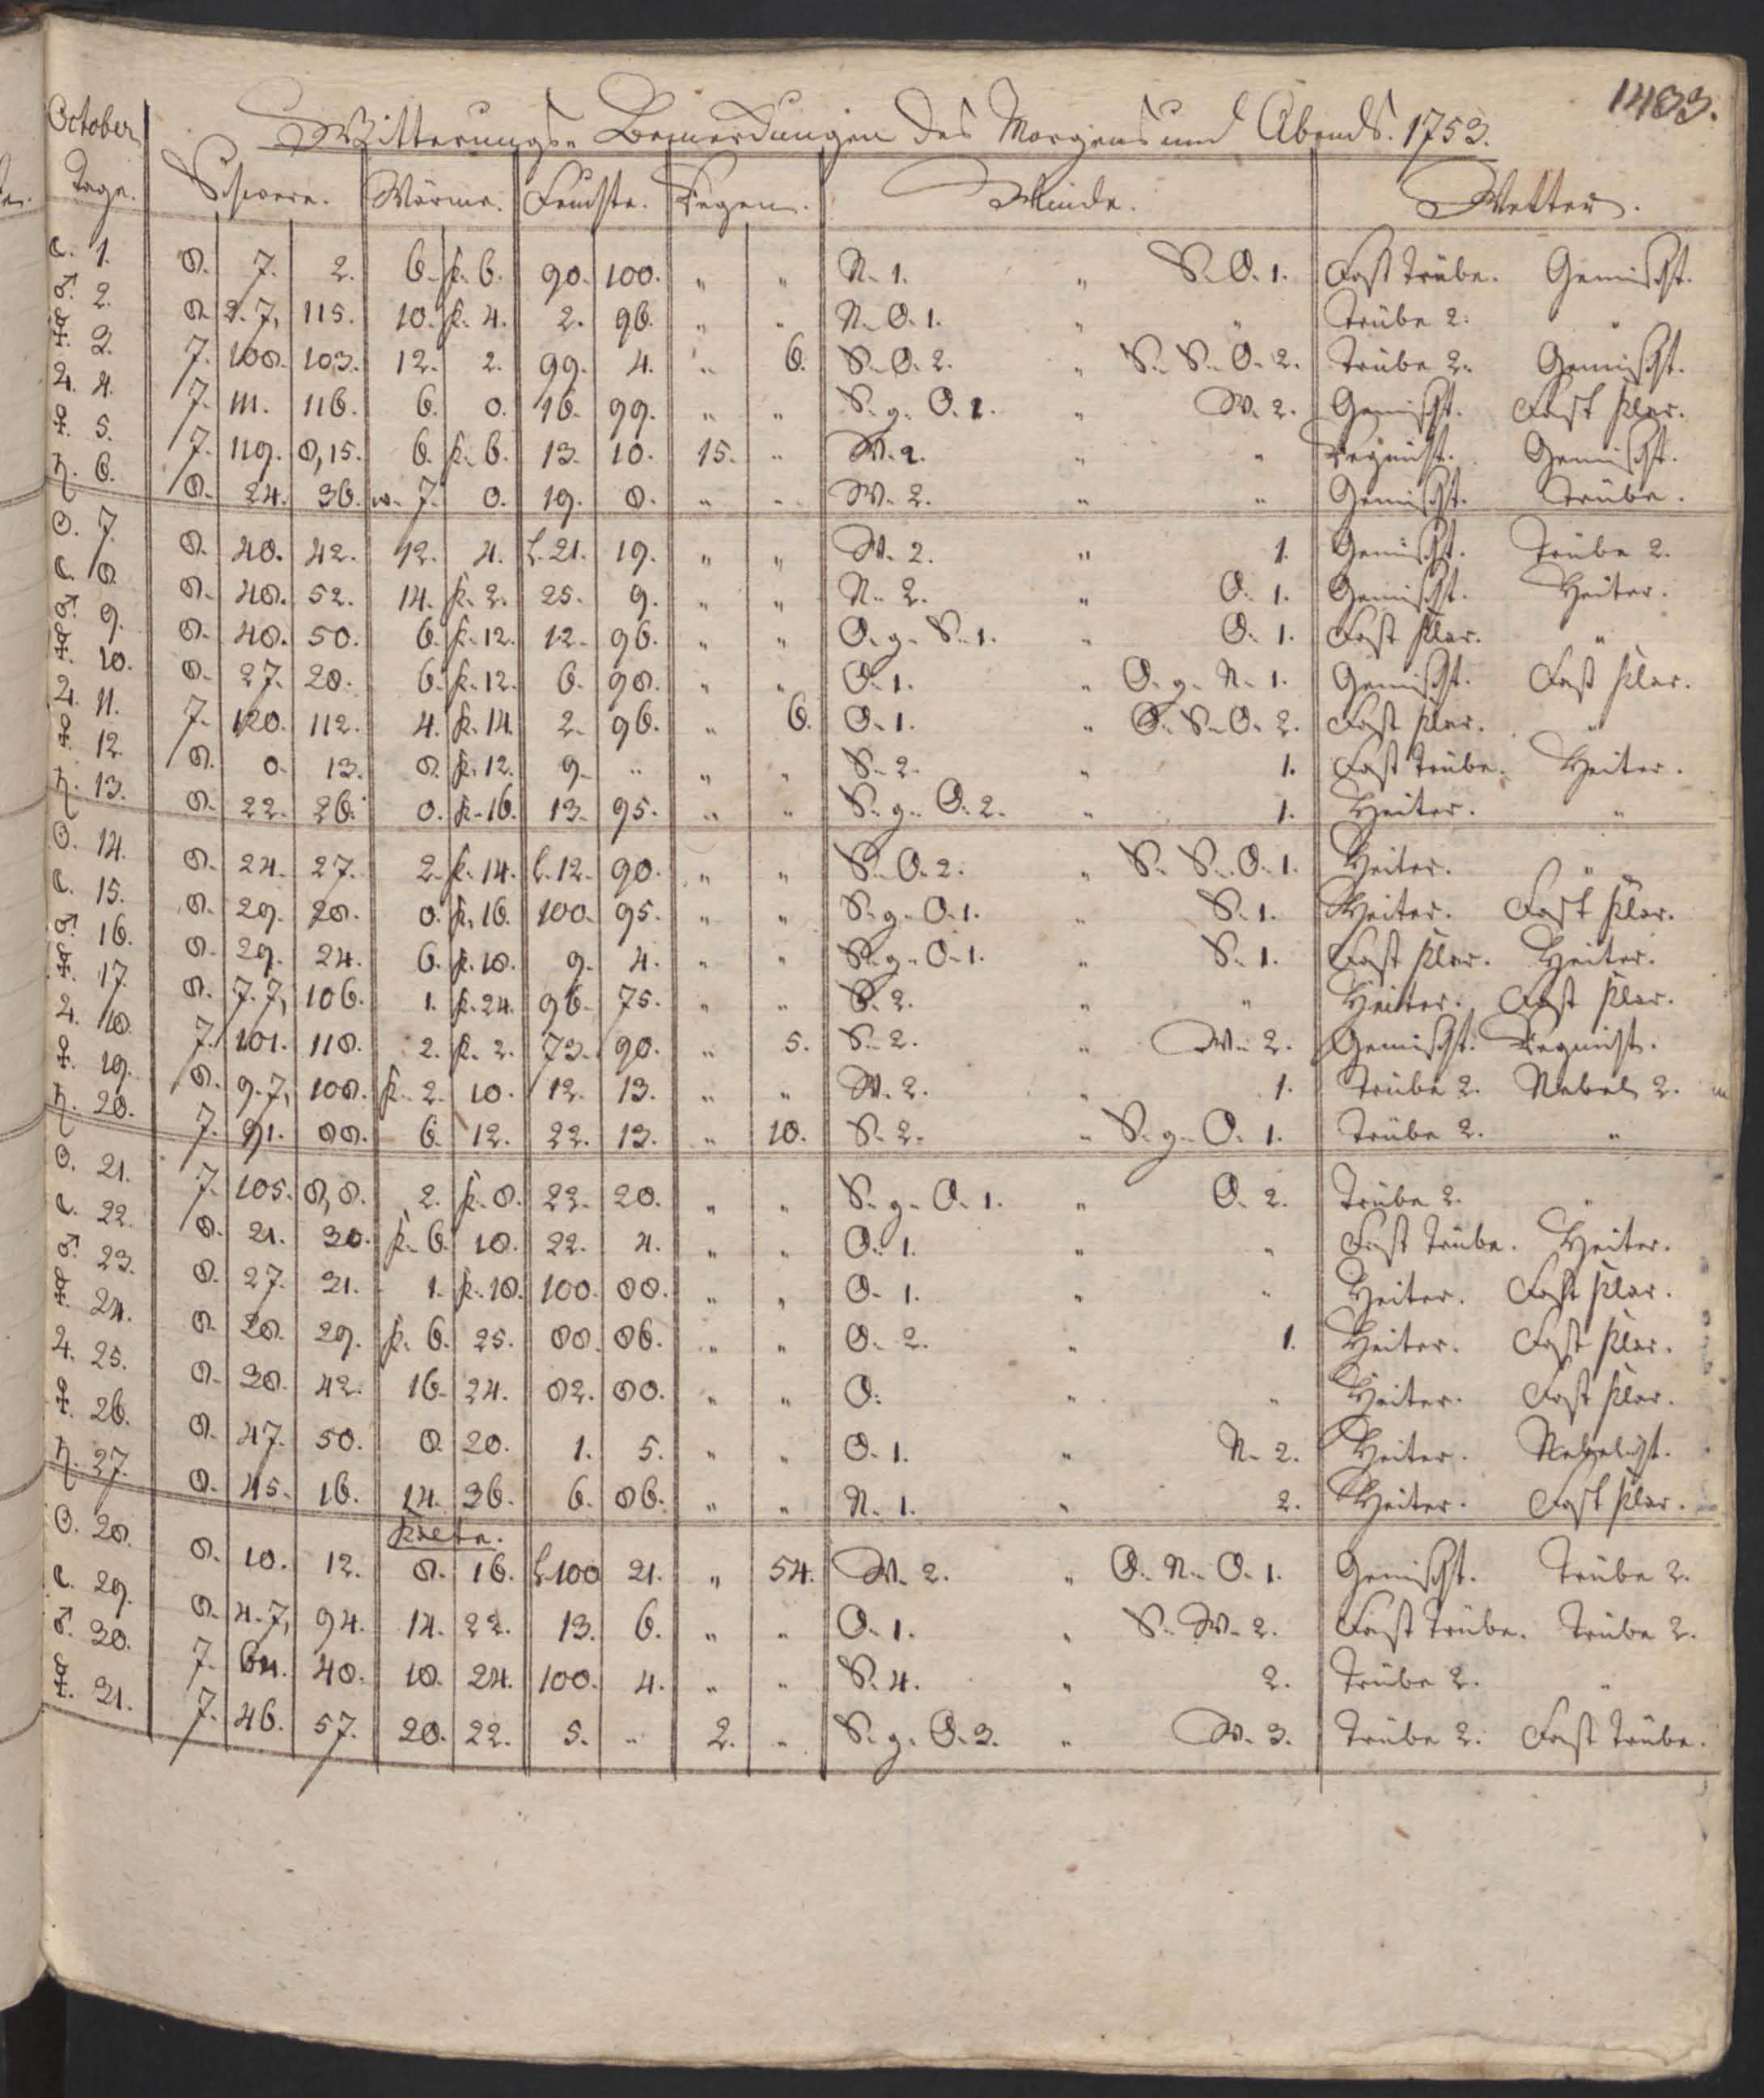 1483.
Witterungs-Bemerckungen des Morgens und Abends. 1753.
October
Tage. Schwere. Wärme. Feuchte. Regen. Winde. Wetter.
☾. 1. 8. 7. 2. 6. k. 6. 90. 100. " " N. 1. " S. O. 1. Fast trübe. Gemischt.
♂. 2. 8. 2. 7, 115. 10. k. 4. 2. 96. " " N. O. 1. " " Trübe 2. "
☿. 3. 7. 108. 103. 12. 2. 99. 4. " 6. S. O. 2. " S. S. O. 2. Trübe 2. Gemischt.
♃. 4. 7. 111. 116. 6. 0. 16. 99. " " S. g. O. 2. " W. 2. Gemischt. Fast klar.
♀. 5. 7. 119. 8, 15. 6. k. 6. 13. 10. 15. " W. 2. " " Regnicht. Gemischt.
♄. 6. 8. 24. 36. w. 7. 0. 19. 8. " " W. 2. " " Gemischt. Trübe.
☉. 7. 8. 40. 42. 12. 4. L. 21. 19. " " W. 2. " 1. Gemischt. Trübe 2.
☾. 8. 8. 48. 52. 14. k. 2. 25. 9. " " N. 2. " O. 1. Gemischt. Heiter.
♂. 9. 8. 48. 50. 6. k. 12. 12. 96. " " O. g. S. 1. " O. 1. Fast klar. "
☿. 10. 8. 27. 20. 6. k. 12. 6. 98. " " O. 1. " O. g. N. 1. Gemischt. Fast klar.
♃. 11. 7. 120. 112. 4. k. 14. 2. 96. " 6. O. 1. " O. S. O. 2. Fast klar. "
♀. 12. 8. 0. 13. 8. k. 12. 9. " " " S. 2. " 1. Fast trübe. Heiter.
♄. 13. 8. 22. 26. 0. k. 16. 13. 95. " " S. g. O. 2. " 1. Heiter. "
☉. 14. 8. 24. 27. 2. k. 14. L. 12. 90. " " S. O. 2. " S. S. O. 1. Heiter. "
☾. 15. 8. 29. 28. 0. k. 16. 100. 95. " " S. g. O. 1. " S. 1. Heiter. Fast klar.
♂. 16. 8. 29. 24. 6. k. 18. 9. 4. " " S. g. O. 1. " S. 1. Fast klar. Heiter.
☿. 17. 8. 7. 7, 106. 1. k. 24. 96. 75. " " S. 2. " " Heiter. Fast klar.
♃. 18. 7. 101. 118. 2. k. 2. 73. 90. " 5. S. 2. " W. 2. Gemischt. Regnicht.
♀. 19. 8. 9. 7, 108. k. 2. 10. 12. 13. " " W. 2. " 1. Trübe 2. Nebel 2.
♄. 20. 7. 91. 88. 6. 12. 22. 13. " 10. S. 2. " S. g. O. 1. Trübe 2. "
☉. 21. 7. 105. 8, 8. 2. k. 8. 22. 20. " " S. g. O. 1. " O. 2. Trübe 2. "
☾. 22. 8. 21. 30. k. 6. 18. 22. 4. " " O. 1. " " Fast trübe. Heiter.
♂. 23. 8. 27. 31. 1. k. 18. 100. 88. " " O. 1. " " Heiter. Fast klar.
☿. 24. 8. 28. 29. k. 6. 25. 88. 86. " " O. 2. " 1. Heiter. Fast klar.
♃. 25. 8. 38. 42. 16. 24. 82. 80. " " O. " " Heiter. Fast klar.
♀. 26. 8. 47. 50. 8. 20. 1. 5. " " O. 1. " N. 2. Heiter. Nebelicht.
♄. 27. 8. 45. 16. 14. 36. 6. 86. " " N. 1. " 2. Heiter. Fast klar.
Kälte.
☉. 28. 8. 10. 12. 8. 16. L. 100 21. " 54. W. 2. " O. N. O. 1. Gemischt. Trübe 2.
☾. 29. 8. 4. 7, 94. 14. 22. 13. 6. " " O. 1. " S. W. 2. Fast trübe. Trübe 2.
♂. 30. 7. 64. 48. 18. 24. 100. 4. " " S. 4. " 2. Trübe 2. "
☿. 31. 7. 46. 57. 20. 22. 5. " 2. " S. g. O. 3. " W. 3. Trübe 2. Fast trübe.